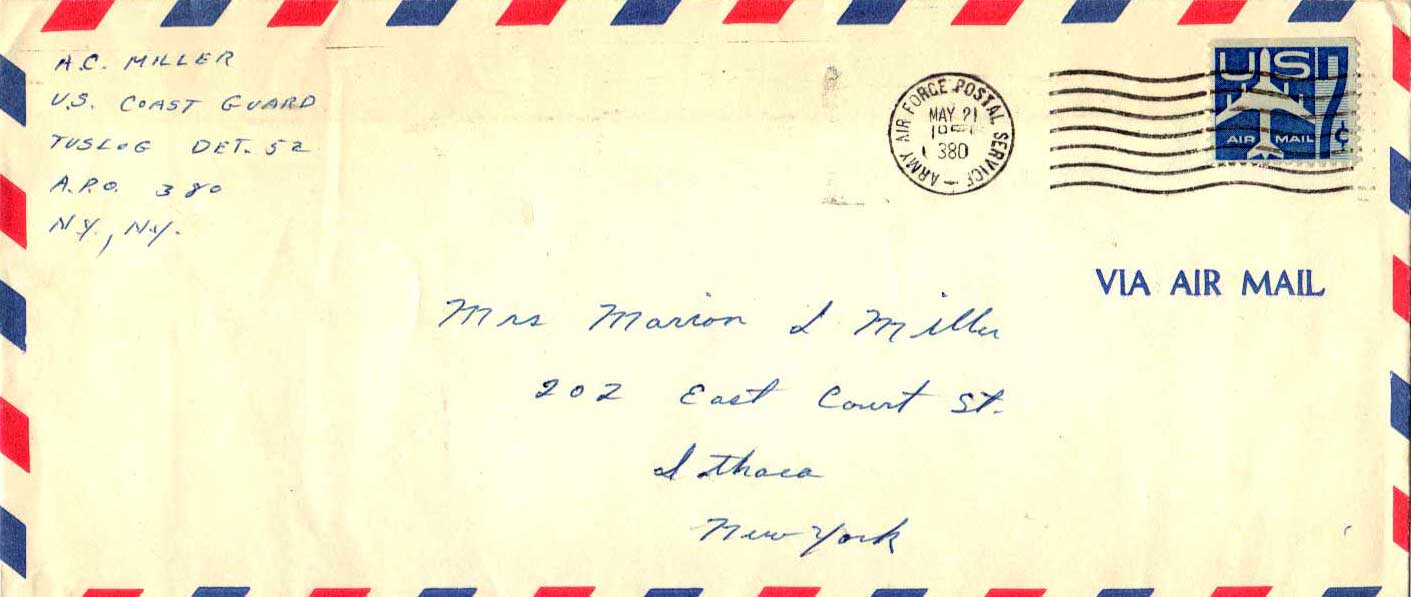 A.C. MILLER
U.S. COAST GUARD
TUSLOG DET. 52
A.P.O. 380
N.Y., N.Y.
ARMY AIR FORCE POSTAL SERVICE
MAY 21
380
US 7¢
AIR MAIL
VIA AIR MAIL
Mrs Marion I Miller
202 East Court St.
Ithaca
New York